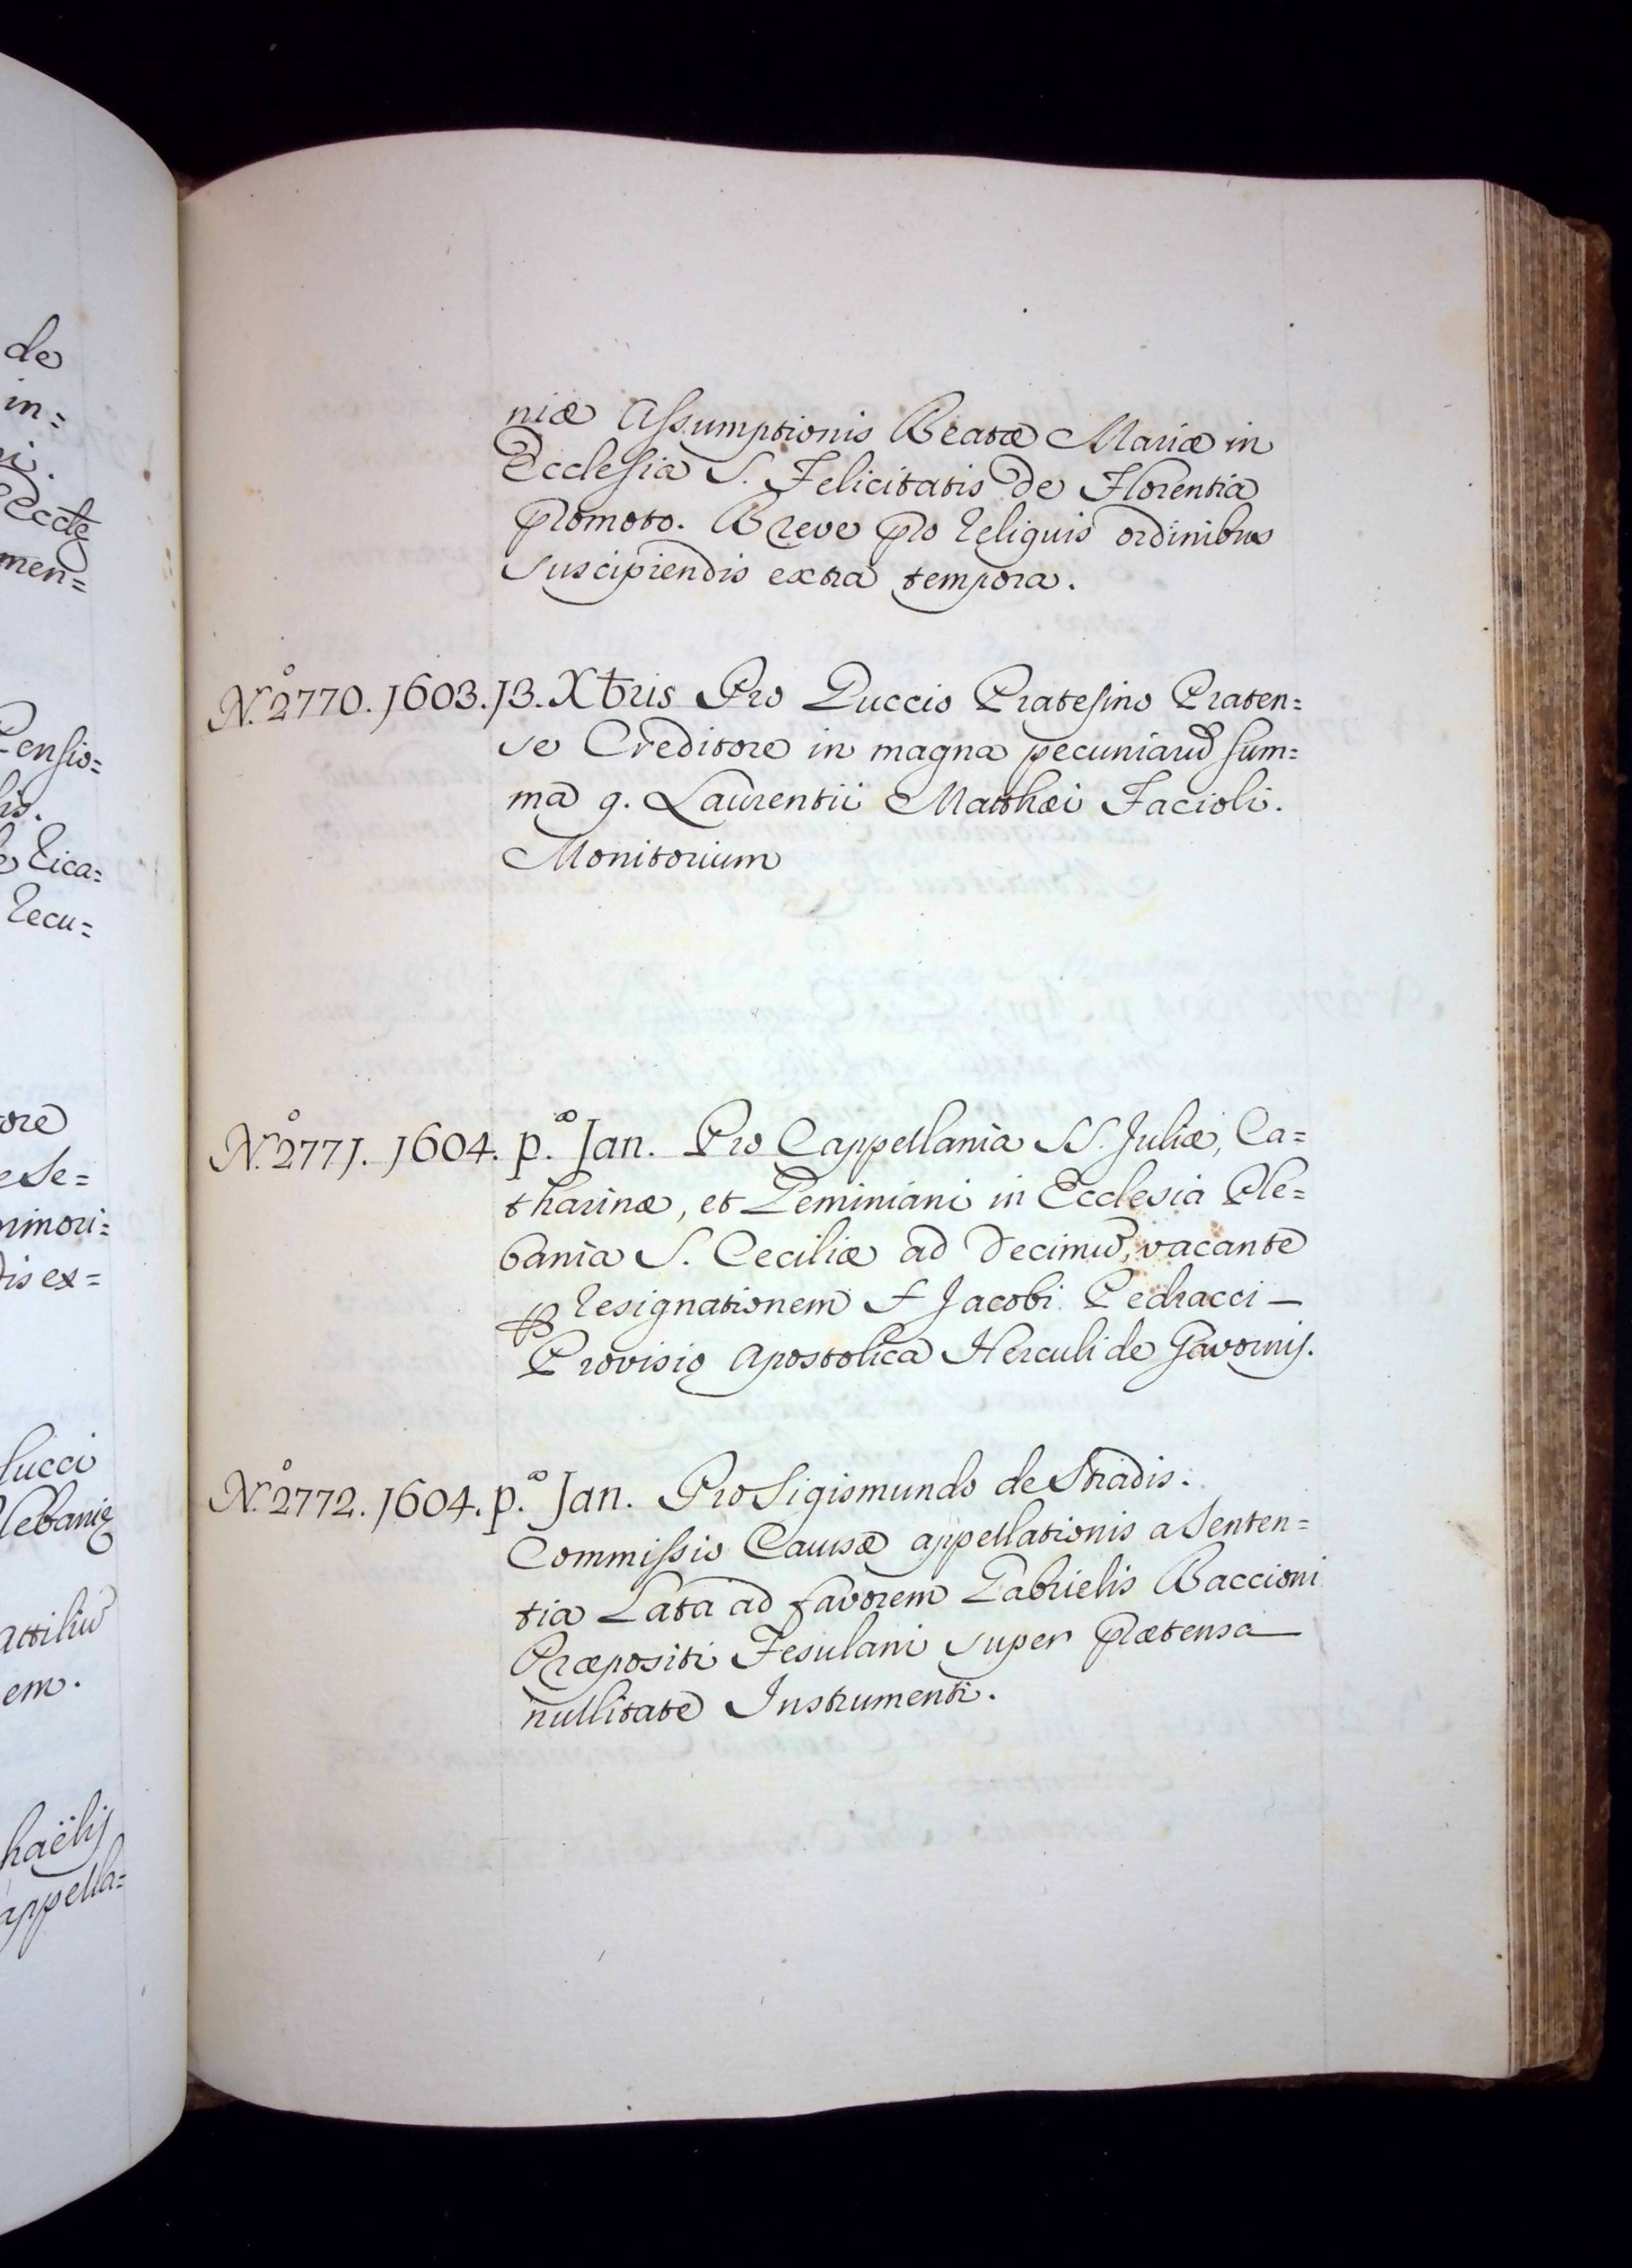 de
in=
ni.
Eccłę
men=
Pensio=
lis.
Rica=
Recu=
ore
e Se=
minori=
dis ex=
lucci
lebanię
Attiliū
em.
haëlij
appella=
niæ Assumptionis Beatæ Mariæ in
Ecclesia S. Felicitatis de Florentia
promoto. Breve pro Reliquis ordinibus
suscipiendis extra tempora.
N.º 2770. 1603. 13. Xbris Pro Puccio Pratesino Praten=
se Creditore in magna pecuniarū sum=
ma q. Laurentii Matthæi Facioli.
Monitorium
N.º 2771. 1604. p.ª Jan. Pro Cappellania SS. Juliæ, Ca=
tharinæ, et Geminiani in Ecclesia Ple=
bania S. Ceciliæ ad Decimū, vacante
ꝑ Resignationem f Jacobi Pedracci —
Provisio Apostolica Herculi de Gavornij.
N.º 2772. 1604. p.ª Jan. Pro Sigismundo de Stradis.
Commissio Causæ appellationis a Senten=
tia Lata ad favorem Gabrielis Baccioni
Præpositi Fesulani super prætensa
nullitate Instrumenti.